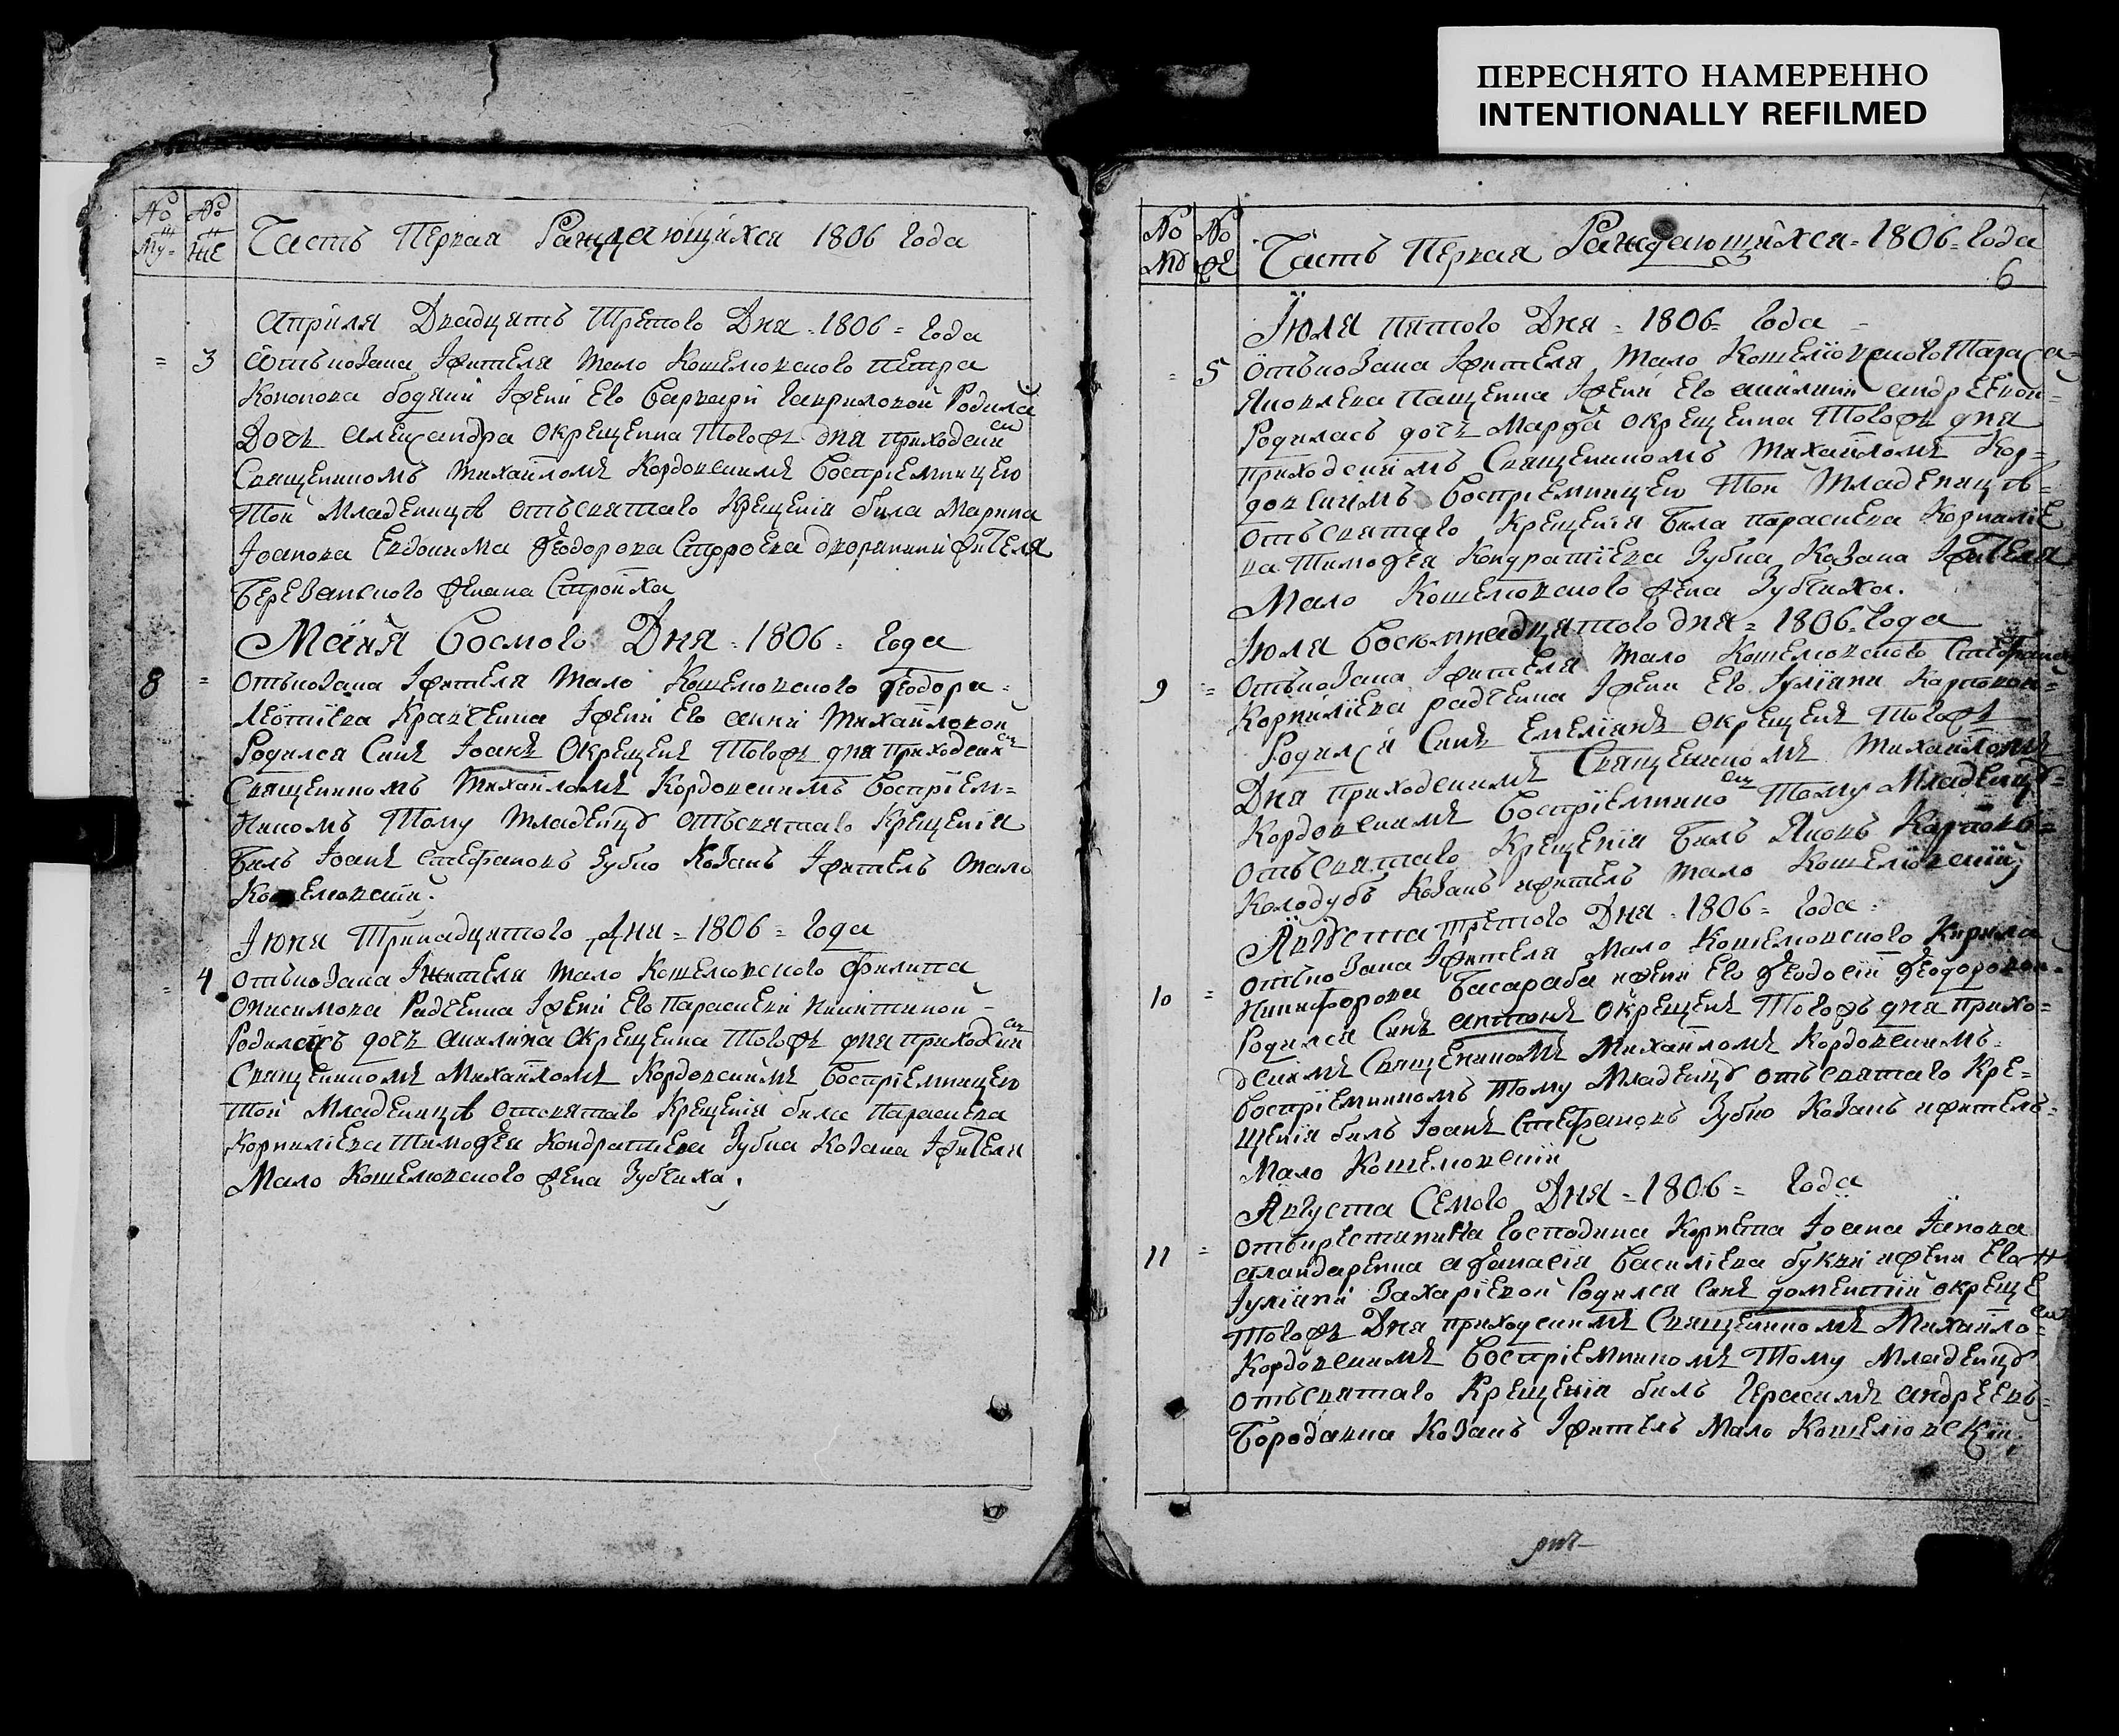 ПЕРЕСНЯТО НАМЕРЕННО
INTENTIONALLY REFILMED
№ Му- № же Часть Первая Раждающихся 1806 Года
Априля Двадцять Третого Дня = 1806 = Года
= 3 Отъкозака Іжителя Мало Кошелювского Петра
Кононова Іжени Его Варвари Гавриловой Родила
Дочь Александра Окрещенна Тогожъ дня приходским
Священикомъ Михаиломъ Кордовскимъ Восприемницею
Той Младенице отъсвятаго Крещенія била Марина
Іоанова Евдокима Феодорова дворянини жителя
Березанского жена Стройха
Маія Восмого Дня = 1806 = Года
8 = Отъкозака Іжителя Мало Кошелювского Феодора
Леотіева Кравченка Іжени Его анни Михайловой
Родился Синъ Іоанъ Окрещенъ Тогожъ дня приходским
Священикомъ Михаиломъ Кордовскимъ Восприем=
никомъ Тому Младенцу отъсвятаго Крещенія
Билъ Іоанъ Стефановъ Зубко Козакъ Іжитель Мало
Кошелювский.
Іюня Тринадцятого Дня = 1806 = Года
= 4 Отъкозака Іжителя Мало Кошелювского Филипа
Онисимова Радченка Іжени Его Параскеви Никитиной
Родилась дочь Акилина Окрещенна Тогожъ дня приходским
Священикомъ Михаиломъ Кордовскимъ Восприемницею
Той Младенице отсвятаго Крещенія била Параскева
Корнилієва Тимофея Кондратиева Зубка Козака Іжителя
Мало Кошелювского жена Зубчиха.
№ Мб № же Часть Первая Раждающихся = 1806 = Года
6
Іюля пятого Дня = 1806 = Года
= 5 Отъкозака Іжителя Мало Кошелювского Тараса
Яковлева Пащенка Іжени Его акилини андреевой
Родилась дочь Марфа окрещенна Тогожъ дня
приходскимъ Священикомъ Михаиломъ Кор=
довскимъ Восприемницею Той Младенице
отъсвятаго Крещенія Била Параскева Корниліе
ва Тимофея Кондратіева Зубка Козака Іжителя
Мало Кошелювского жена Зубчиха.
Іюля Восюмнадцятого дня = 1806 = Года
9 = Отъкозака Іжителя Мало Кошелювского Стефана
Корнилієва радченка Іжени Его Іуліяни Карповой
Родился Синъ Емеліянъ окрещенъ Тогожъ
Дня приходскимъ Священикомъ Михаиломъ
Кордовскимъ Восприемником Тому Младенцу
Отъсвятаго Крещенія Билъ Яковъ Карповъ
Колодубъ Козакъ ижитель Мало Кошелювский
Августа третого Дня = 1806 = Года
10 = Отъкозака Іжителя Мало Кошелювского Кирила
Никифорова Басараба ижени Его Феодосіи Феодоровой
Родился Синъ антонъ Окрещенъ Тогожъ дня прихо=
дскимъ Священикомъ Михаиломъ Кордовскимъ
Восприемникомъ Тому Младенцу отъсвятаго Кре=
щенія билъ Іоанъ Стефановъ Зубко Козакъ ижитель
Мало Кошелювский
Августа Семого Дня = 1806 = Года
11 = Господина Корнета Іоана Іанова
афанасія Василієва ижени Его
Іуліяни Захарієвой Родился Синъ доментий окреще
Тогожъ Дня приходскимъ Священикомъ Михаило
Кордовскимъ Восприемникомъ Тому Младенцу
отъсвятаго Крещенія билъ Герасимъ андреевъ
Бородавка Козакъ Іжитель Мало Кошелювский.